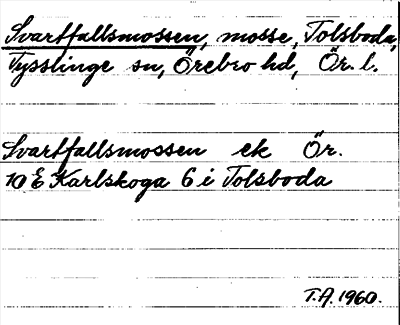 Svartfallsmossen, mosse, Tolsboda,
Tysslinge sn, Örebro hd, Ör. l.
Svartfallsmossen ek Ör.
10 E Karlskoga 6 i Tolsboda
T.A. 1960.